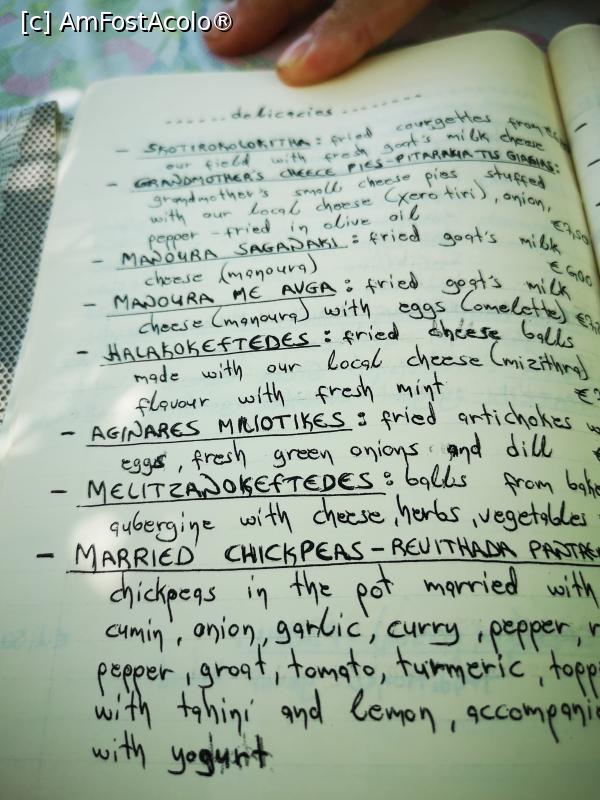 [c] AmFostAcolo®
...... delicacies ........
- SKOTIROKOLOKITHA: fried courgettes from
our field with fresh goat's milk cheese
- GRANDMOTHER'S CHEECE PIES-PITARAKIA TIS GIAGIAS:
grandmother's small cheese pies stuffed
with our local cheese (xerotiri), onion,
pepper-fried in olive oil €7,50
- MANOURA SAGANAKI: fried goat's milk
cheese (manoura) €6,00
- MANOURA ME AVGA: fried goat's milk
cheese (manoura) with eggs (omelette)
- HALAKOKEFTEDES: fried cheese balls
made with our local cheese (mizithra)
flavour with fresh mint
- AGINARES MILIOTIKES: fried artichokes
eggs, fresh green onions and dill
- MELITZANOKEFTEDES: balls from
aubergine with cheese, herbs, vegetables
- MARRIED CHICKPEAS-REVITHADA
chickpeas in the pot married with
cumin, onion, garlic, curry, pepper,
pepper, groat, tomato, turmeric,
with tahini and lemon,
with yogurt